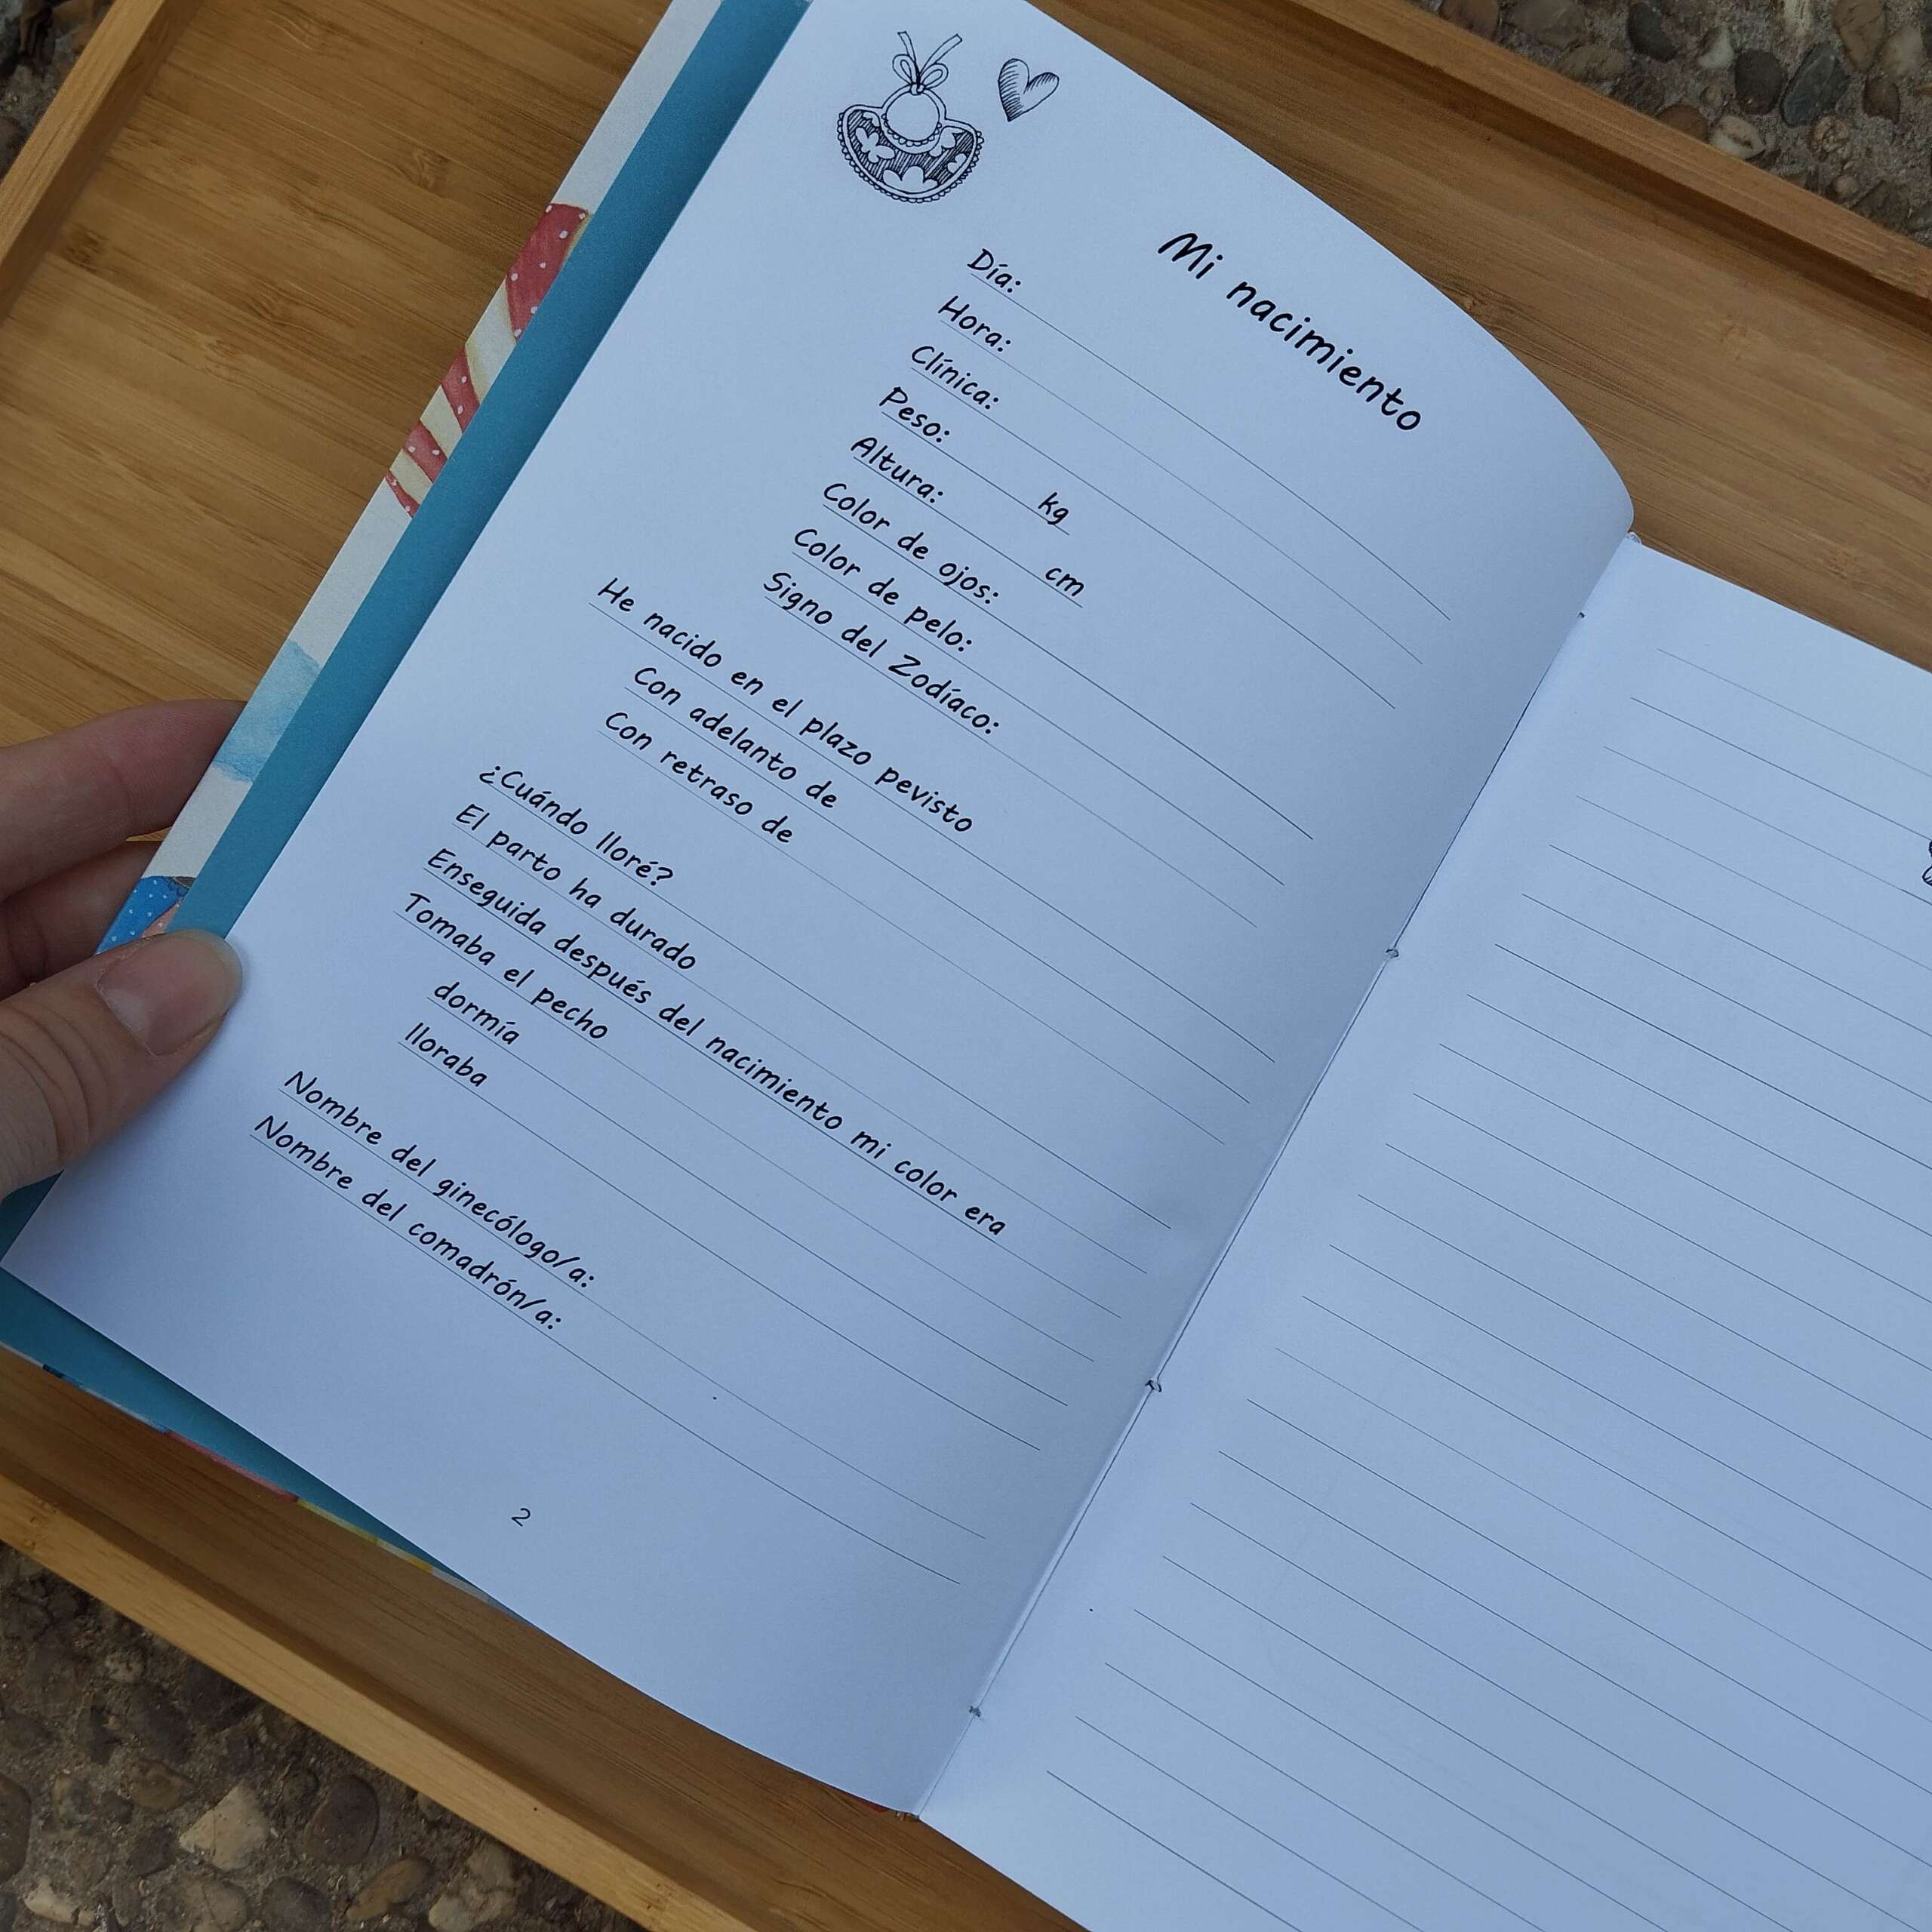 Mi nacimiento
Día:
Hora:
Clínica:
Peso: kg
Altura: cm
Color de ojos:
Color de pelo:
Signo del Zodíaco:
He nacido en el plazo pevisto
Con adelanto de
Con retraso de
¿Cuándo lloré?
El parto ha durado
Enseguida después del nacimiento mi color era
Tomaba el pecho
dormía
lloraba
Nombre del ginecólogo/a:
Nombre del comadrón/a:
2